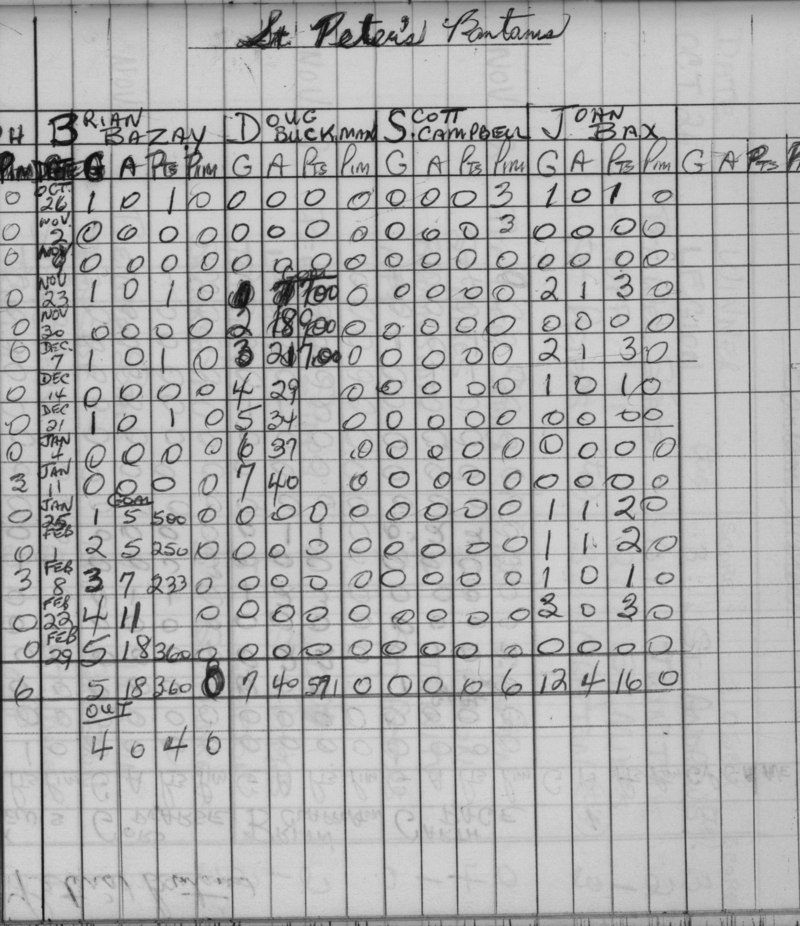 St. Peter's Bantams
H BRIAN BAZAY DOUG BUCKMAN SCOTT CAMPBELL JOHN BAX
PIM G A PTS PIM G A PTS PIM G A PTS PIM G A PTS PIM G A PTS P
0 OCT. 26 1 0 1 0 0 0 0 0 0 0 0 3 1 0 1 0
0 NOV 2 0 0 0 0 0 0 0 0 0 0 0 3 0 0 0 0
0 NOV 9 0 0 0 0 0 0 0 0 0 0 0 0 0 0 0 0
0 NOV 23 1 0 1 0 1 7 700 0 0 0 0 0 2 1 3 0
0 NOV 30 0 0 0 0 2 18 900 0 0 0 0 0 0 0 0 0
0 DEC. 7 1 0 1 0 3 21 700 0 0 0 0 0 2 1 3 0
0 DEC 14 0 0 0 0 4 29 0 0 0 0 0 1 0 1 0
0 DEC 21 1 0 1 0 5 34 0 0 0 0 0 0 0 0 0
0 JAN 4 0 0 0 0 6 37 0 0 0 0 0 0 0 0 0
3 JAN 11 0 0 0 0 7 40 0 0 0 0 0 0 0 0 0
GOAL
0 JAN 25 1 5 500 0 0 0 0 0 0 0 0 0 1 1 2 0
0 FEB 1 2 5 250 0 0 0 0 0 0 0 0 0 1 1 2 0
3 FEB 8 3 7 233 0 0 0 0 0 0 0 0 0 1 0 1 0
0 FEB 22 4 11 0 0 0 0 0 0 0 0 0 3 0 3 0
0 FEB 29 5 18 360 0 0 0 0 0 0 0 0 0 0 0 0 0
6 5 18 360 0 7 40 571 0 0 0 0 6 12 4 16 0
OUT
4 0 4 0